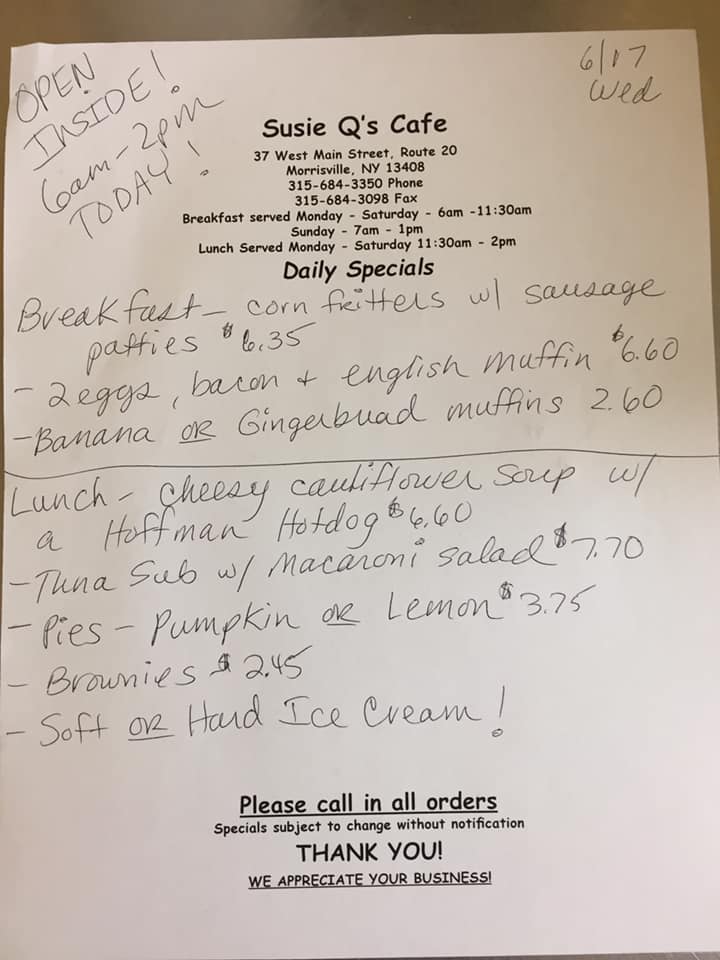 OPEN
INSIDE!
6am-2pm
TODAY!
6/17
Wed
Susie Q's Cafe
37 West Main Street, Route 20
Morrisville, NY 13408
315-684-3350 Phone
315-684-3098 Fax
Breakfast served Monday - Saturday - 6am -11:30am
Sunday - 7am - 1pm
Lunch Served Monday - Saturday 11:30am - 2pm
Daily Specials
Breakfast- corn fritters w/ sausage
patties $6.35
- 2eggs, bacon + english muffin $6.60
- Banana OR Gingerbread muffins 2.60
Lunch - cheesy cauliflower soup w/
a Hoffman Hotdog $6.60
- Tuna Sub w/ Macaroni salad $7.70
- Pies - Pumpkin OR Lemon $3.75
- Brownies $2.45
- Soft OR Hard Ice Cream!
Please call in all orders
Specials subject to change without notification
THANK YOU!
WE APPRECIATE YOUR BUSINESS!